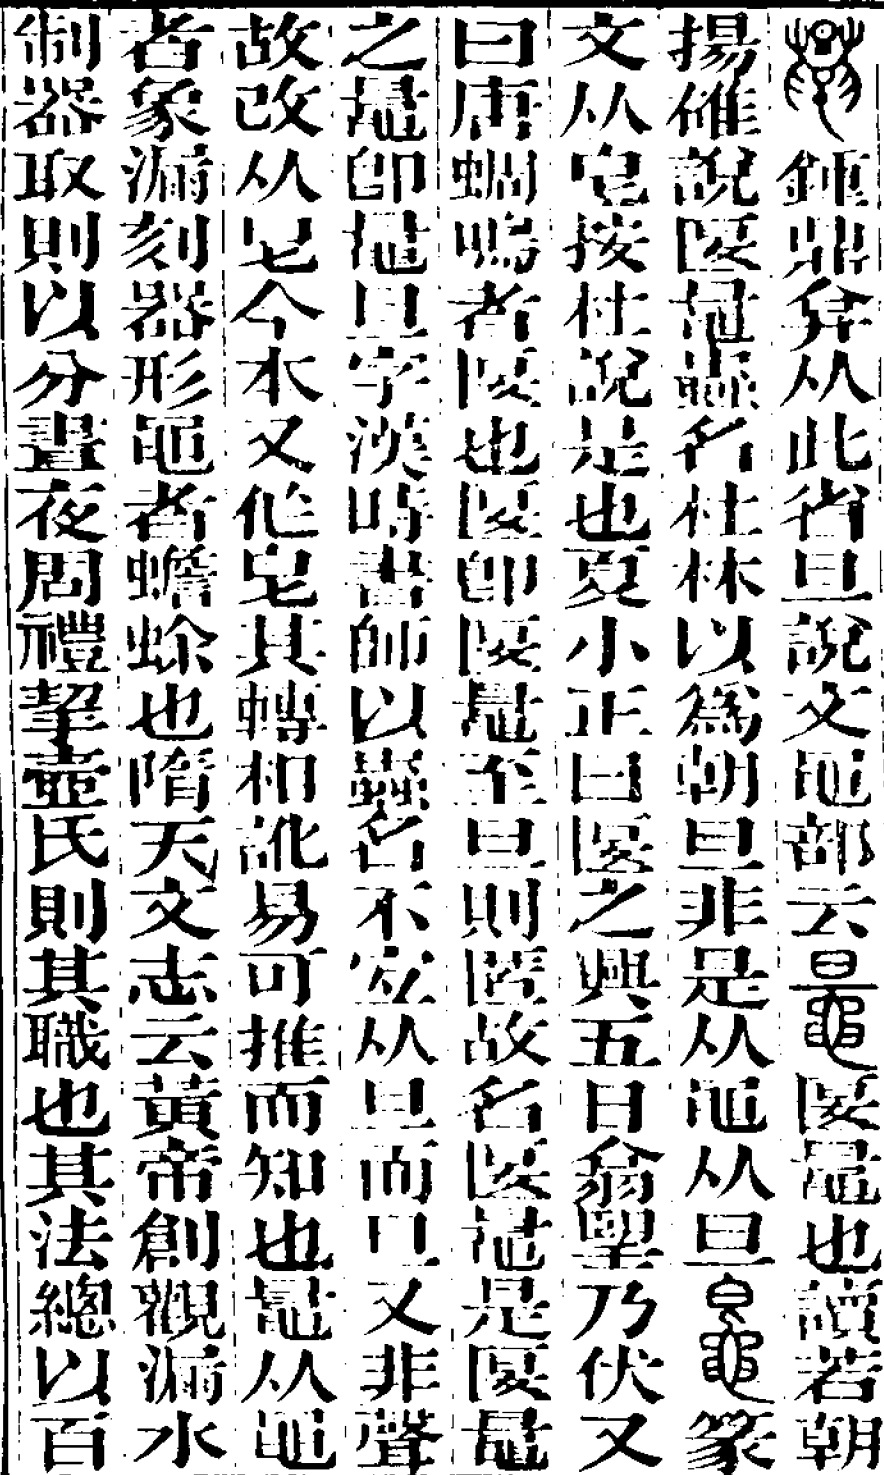 鍾鼎弇从此省旦說文黽部云鼂匽鼂也讀若朝
揚碓說匽鼂蟲名杜林以為朝旦非是从黽从旦篆
文从皀按杜說是也夏小正曰匽之興五日翕望乃伏又
曰唐蜩鳴者匽也匽即匽鼂至旦則匿故名匽鼂是匽鼂
之鼂即鼂旦字漢時書師以蟲名不宜从旦而旦又非聲
故改从今本又作皀其轉相訛易可推而知也鼂从黽
者象漏刻器形黽者蟾蜍也隋天文志云黃帝創觀漏水
制器取則以分晝夜周禮挈壺氏則其職也其法總以百